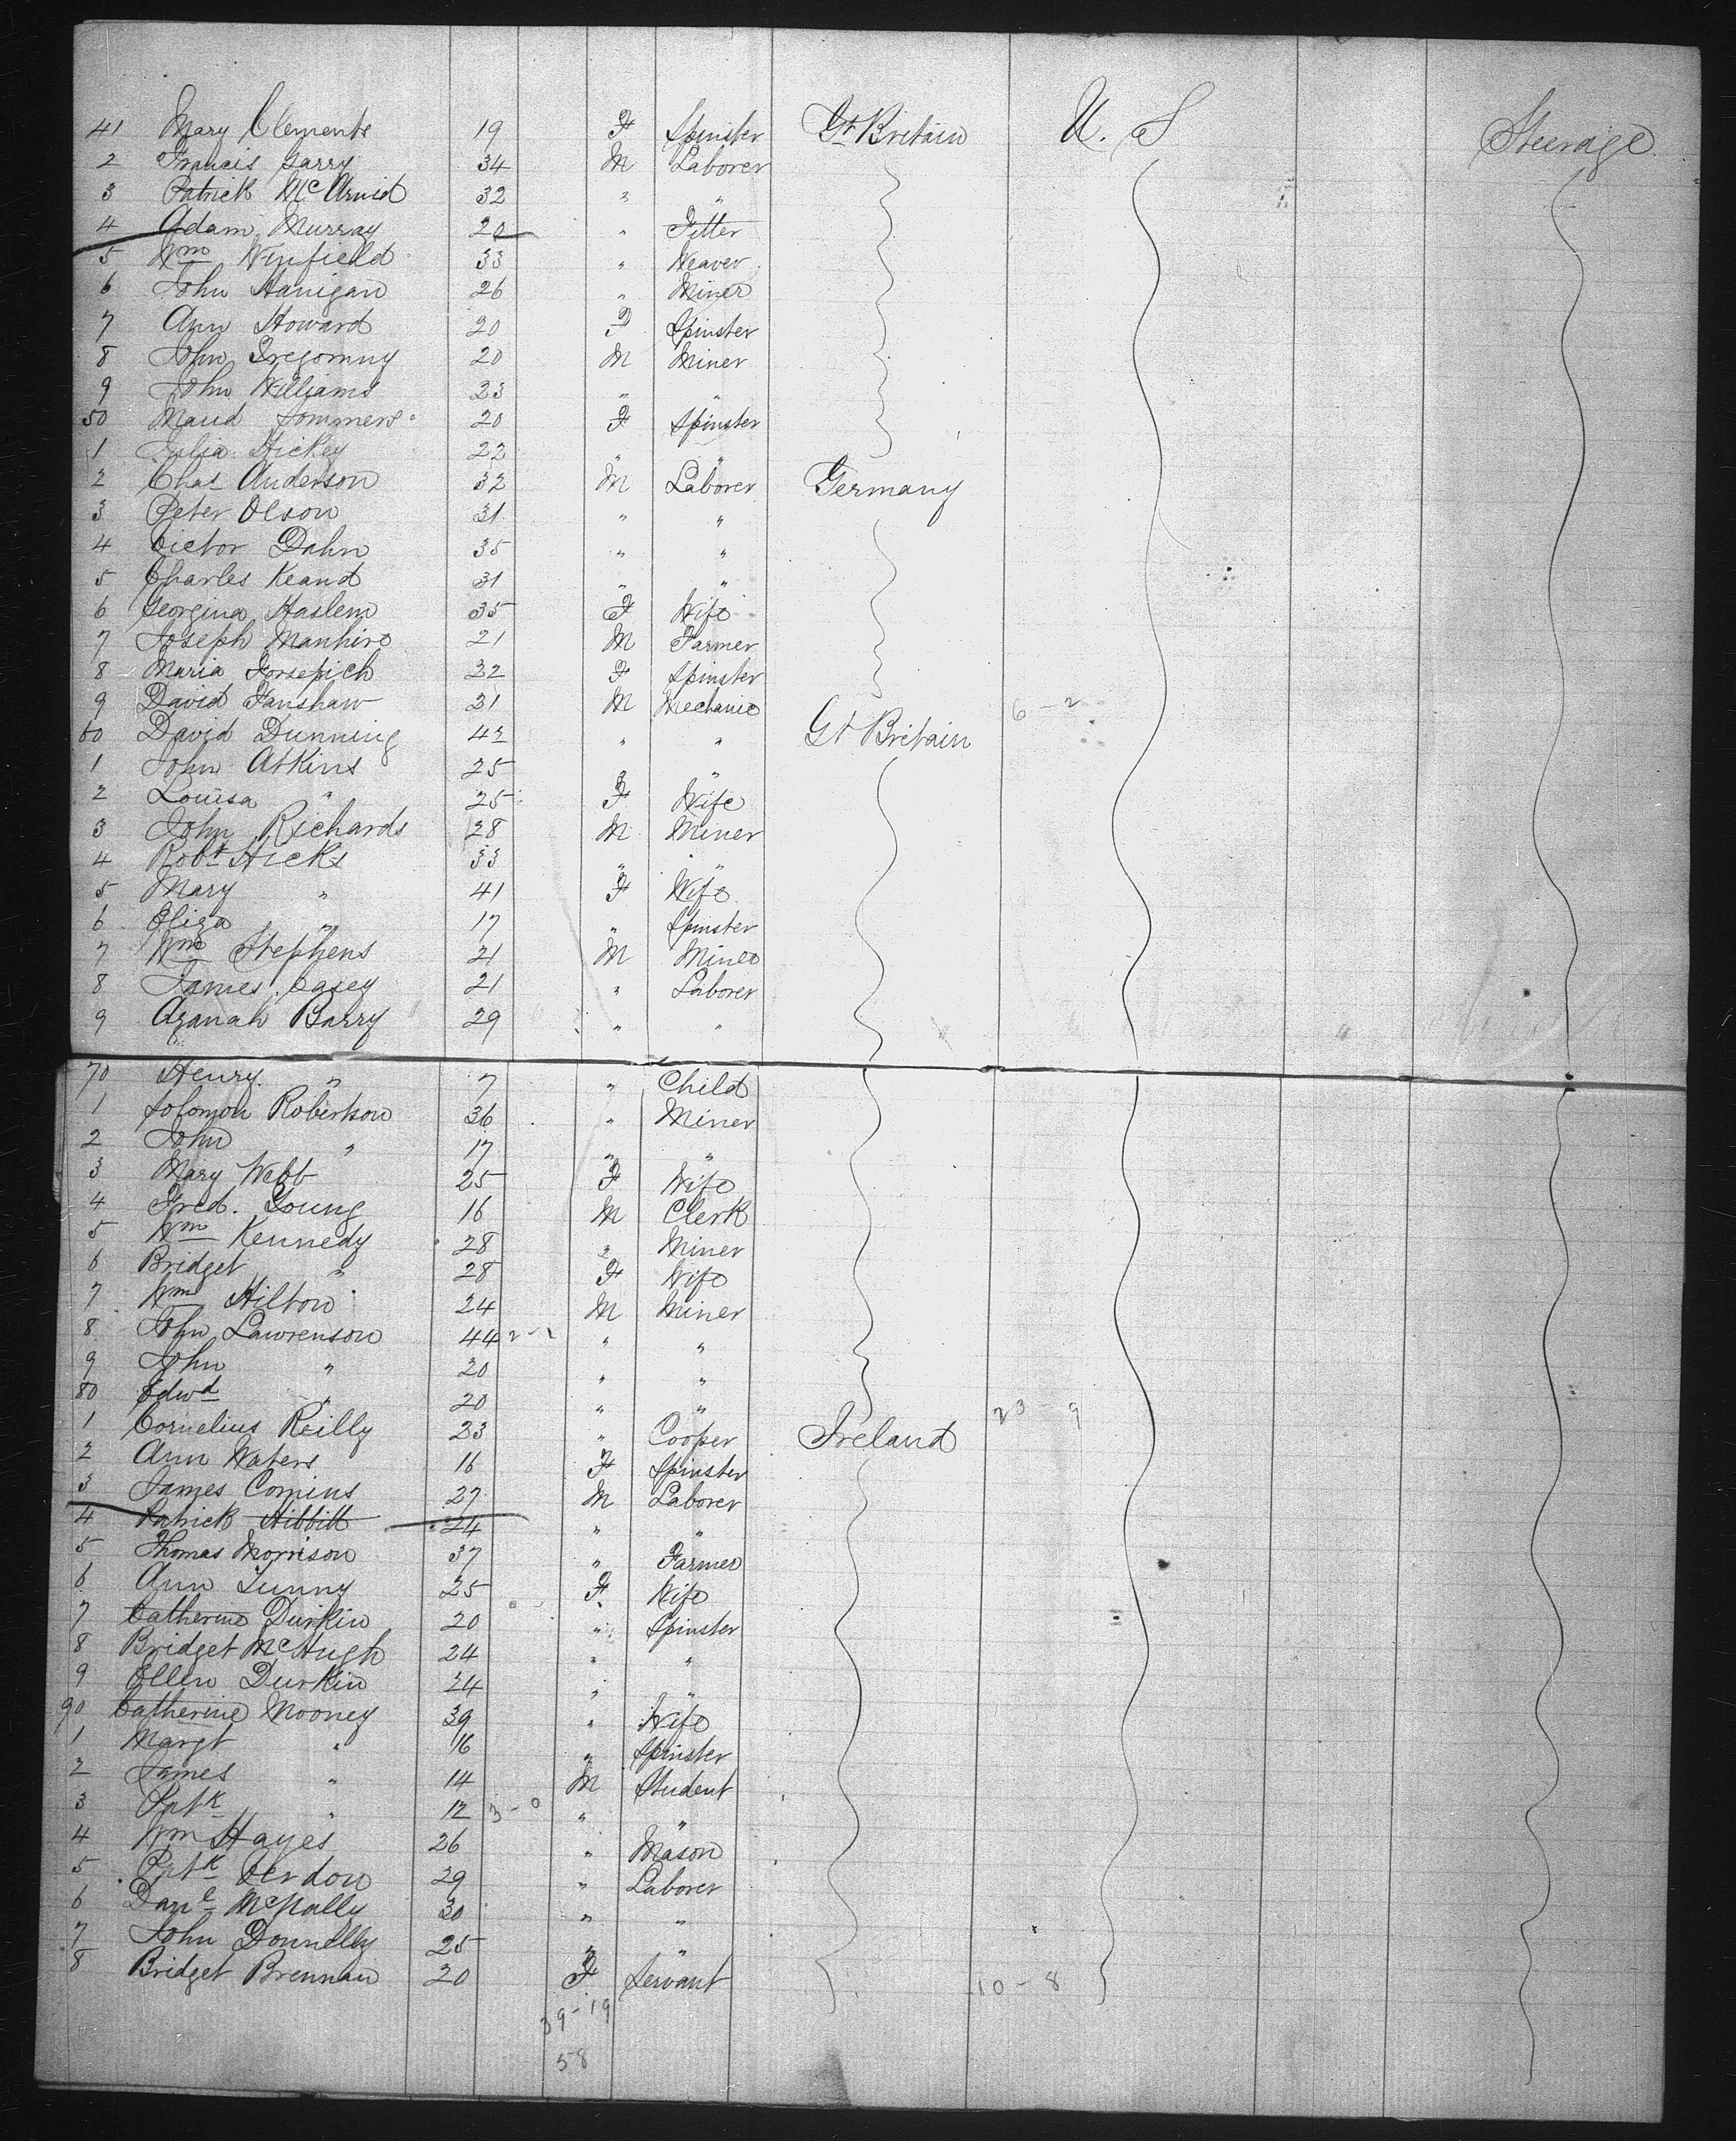 41 Mary Clements 19 F Spinster Gt Britain U. S Steerage
2 Francis Garry 34 M Laborer
3 Patrick McArnid 32 " "
4 Adam Murray 20 " Fitter
5 Wm Winfield 33 " Weaver
6 John Hanigan 26 " Miner
7 Ann Howard 20 F Spinster
8 John Tregonny 20 M Miner
9 John Williams 23 " "
50 Maud Sommers 20 F Spinster
1 Julia Hickey 22 " "
2 Chas Anderson 32 M Laborer Germany
3 Peter Olson 31 " "
4 Victor Dahn 35 " "
5 Charles Keand 31 " "
6 Georgina Haslem 35 F Wife
7 Joseph Manhire 21 M Farmer
8 Maria 32 F Spinster
9 David Fanshaw 31 M Mechanic 6-2
60 David Dunning 43 " " Gt Britain
1 John Atkins 25 " "
2 Louisa " 25 F Wife
3 John Richards 28 M Miner
4 Robt Hicks 33 " "
5 Mary " 41 F Wife
6 Eliza " 17 " Spinster
7 Wm Stephens 21 M Miner
8 James Casey 21 " Laborer
9 Azanah Barry 29 " "
70 Henry " 7 " Child
1 Solomon Robertson 36 " Miner
2 John " 17 " "
3 Mary Webb 25 F Wife
4 Fred. Young 16 M Clerk
5 Wm Kennedy 28 " Miner
6 Bridget " 28 F Wife
7 Wm Hilton 24 M Miner
8 John Lawrenson 44 2-2 " "
9 John " 20 " "
80 Edwd " 20 " " 23-9
1 Cornelius Reilly 23 " Cooper Ireland
2 Ann Waters 16 F Spinster
3 James Comins 27 M Laborer
4 Patrick Hibbitt 24 " "
5 Thomas Morrison 37 " Farmer
6 Ann Tunny 25 F Wife
7 Catherine Durkin 20 " Spinster
8 Bridget McHugh 24 " "
9 Ellen Durkin 24 " "
90 Catherine Mooney 39 " Wife
1 Margt " 16 " Spinster
2 James " 14 M Student
3 Patk " 12 3-0 " "
4 Wm Hayes 26 " Mason
5 Patk Verdon 29 " Laborer
6 Danl McNally 30 " "
7 John Donnelly 25 " "
8 Bridget Brennan 20 F Servant 10-8
39-19
58